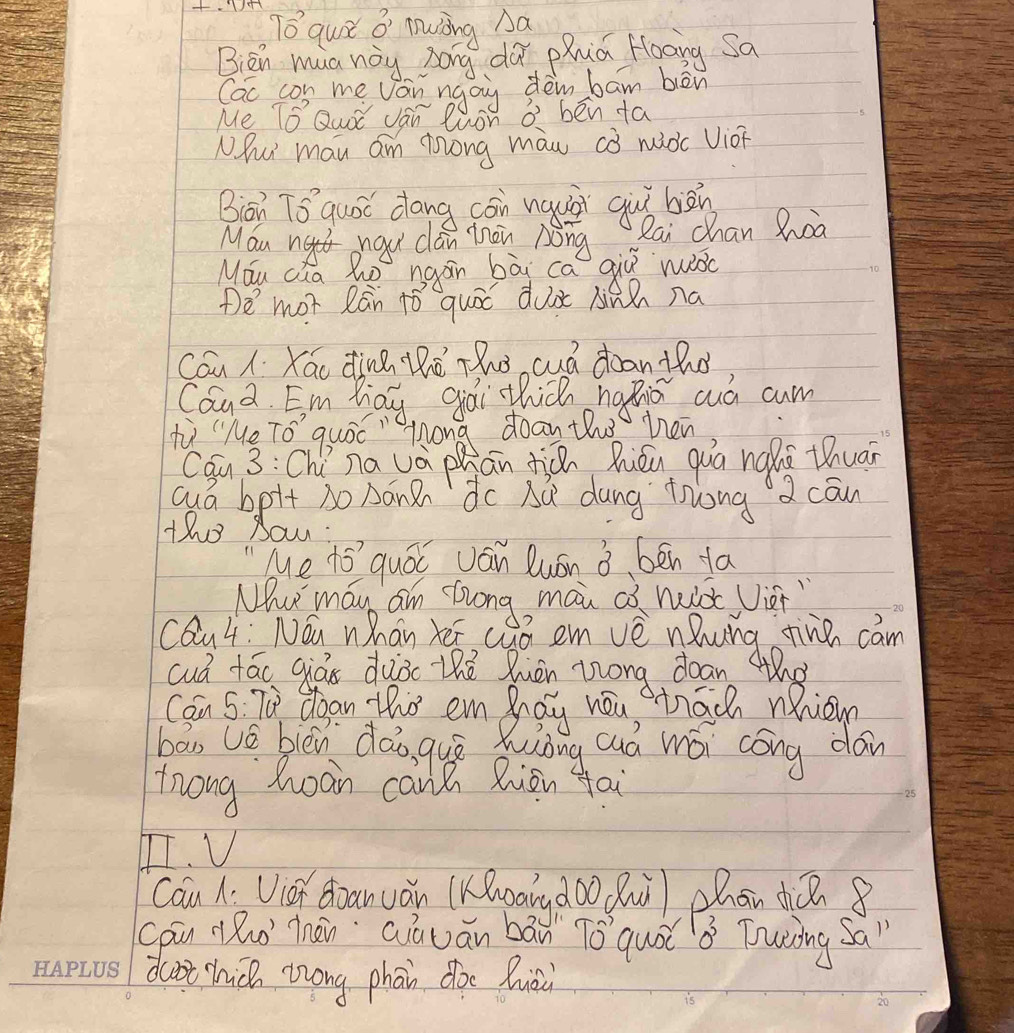 Tổ quốc ở trường Sa
Biển mùa này sóng dữ phía Hoàng Sa
Các con mẹ vẫn ngày đêm bám biển
Mẹ Tổ Quốc vẫn luôn ở bên ta
Như máu ấm trong màu cờ nước Việt
Biển Tổ quốc đang cần người giữ biển
Máu ngư dân trên sóng lại chan hoà
Máu của họ ngân bài ca giữ nước
Để một lần tổ quốc được sinh ra
Câu 1: Xác định thể thơ của đoạn thơ
Câu 2. Em hãy giải thích nghĩa của cụm
từ "Mẹ Tổ quốc" trong đoạn thơ trên
Câu 3: Chỉ ra và phân tích hiệu quả nghệ thuật
của bptt so sánh đc sử dụng trong 2 câu
thơ sau:
"Mẹ tổ quốc vẫn luôn ở bên ta
Như máu ấm trong màu cờ nước Việt"
Câu 4: Nêu nhận xét của em về những tình cảm
của tác giả được thể hiện trong đoạn thơ
Câu 5: Từ đoạn thơ em hãy nêu trách nhiệm
bảo vệ biển đảo, quê hương của mỗi công dân
trong hoàn cảnh hiện tại
II. V
Câu 1: Viết đoạn văn (Khoảng 200 chữ) phân tích 8
câu thơ trên của văn bản "Tổ quốc ở Trường Sa"
HAPLUS được trích trong phần đọc hiểu